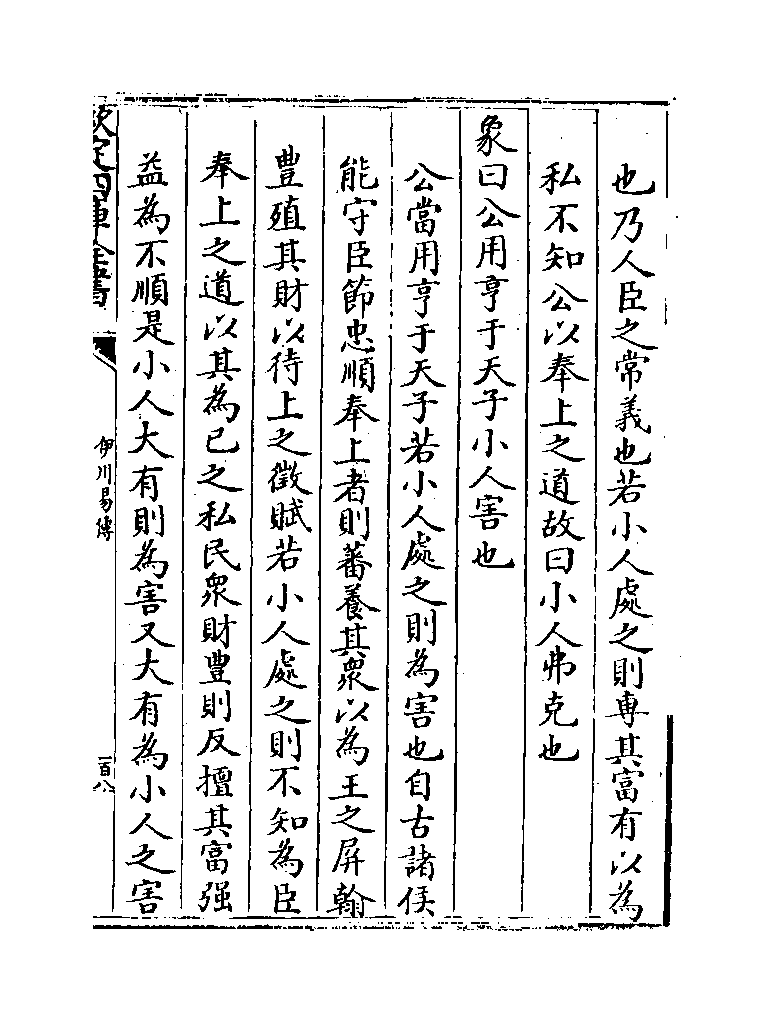 也乃人臣之常義也若小人處之則專其富有以為
私不知公以奉上之道故曰小人弗克也
象曰公用亨于天子小人害也
公當用亨于天子若小人處之則為害也自古諸侯
能守臣節忠順奉上者則蕃養其衆以為王之屏翰
豐殖其財以待上之徵賦若小人處之則不知為臣
奉上之道以其為已之私民衆財豐則反擅其富强
益為不順是小人大有則為害又大有為小人之害
欽定四庫全書
伊川易傳
一百八